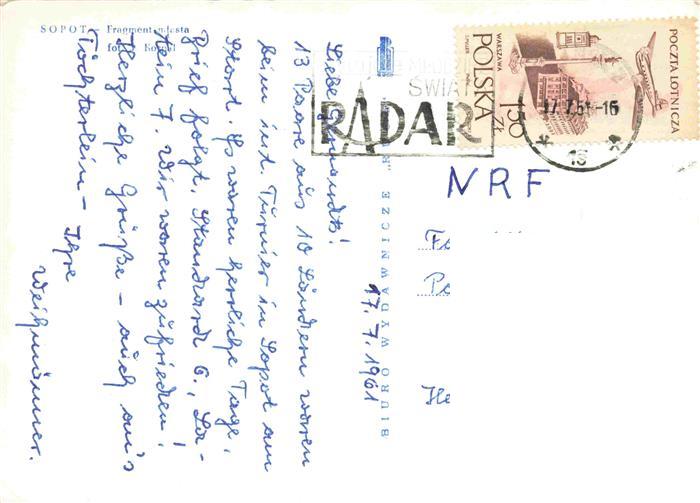 SOPOT - Fragment miasta
fot.
Liebe Gemandts!
13 Paare aus 10 Ländern waren
beim int. Turnier in Sopot am
Start. Es waren herrliche Tage.
Brief folgt. Standard 6., La-
tein 7. Wir waren zufrieden!
Herzliche Grüße - auch an's
Töchterlein - Ihre
Weihmänner.
17.7.1961
BIURO WYDAWNICZE "R
ŚWIA
RADAR
17.7.61-16
*
15
*
POCZTA LOTNICZA
WARSZAWA
POLSKA
1,50 ZŁ
NRF
Fe
Pe
He